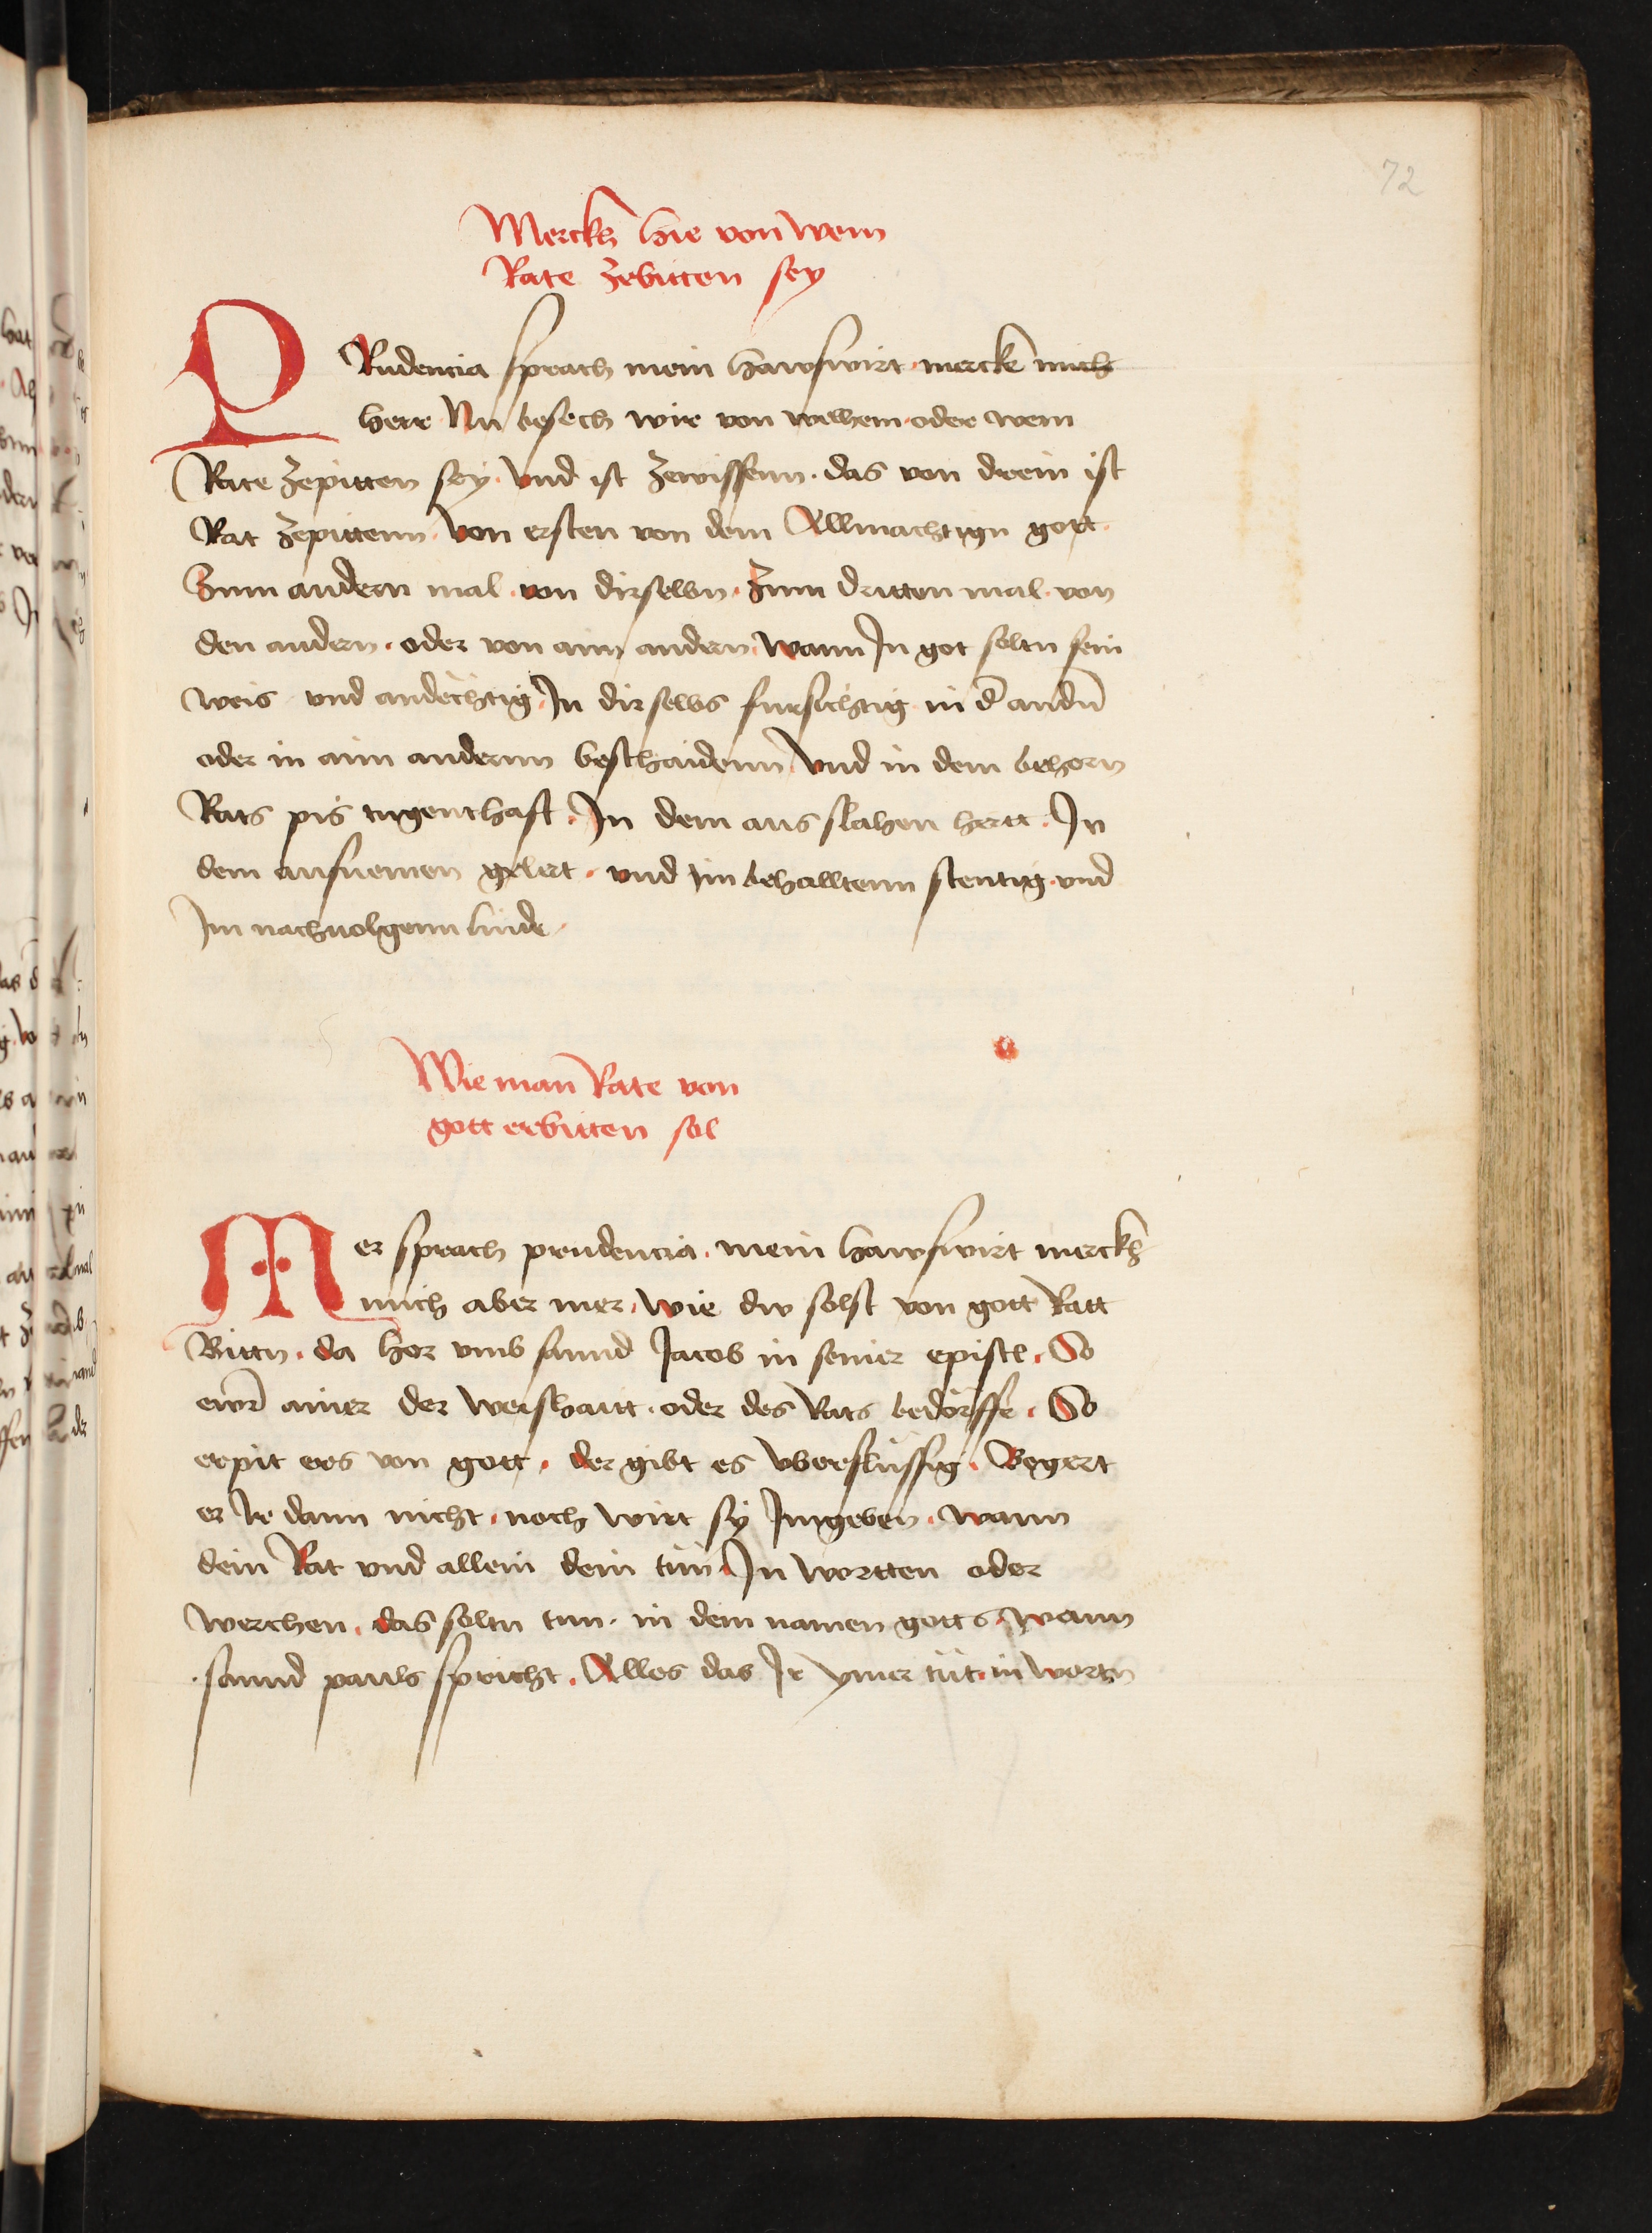 72
Merckh hie von wem
Rate zebitten sey
PRudencia sprach mein hawswirt · mercke mich
herr Nu besech wir von welhem · oder wem
Rate zepitten sey · Vnd ist zewissenn · das von drein ist
Rat zepittenn · Von ersten von dem Allmachtign gott ·
Zum andern mal · von dirselbn · Zum dritten mal · von
den andern · oder von aim andern · Wann In got soltu sein
weis · vnd andechtig · In dir selbs fursichtig in d̄ andn̄
oder in aim andernn beschaidenn · Vnd in dem behorn
Rats pis tugenthaft · In dem aus slahen hertt · In
dem aufnemen gelert · vnd im behalltenn stentig · vnd
Im nachuolgenn linde ·
Wie man Rate von
gott erbitten sol
Mer sprach prudencia · mein hawswirt merckh
mich aber mer · Wie dw solst von gott Ratt
Bittn · da hor vmb sannd Jacob in seiner epistl · So
ewr̄ ainer der Weishaitt · oder des Rats bedörffe · So
erpit ers von gott · der gibt es vberflüssig · Begert
er Ir dann nicht · noch wirt sy Imgeben · Wann
dein Rat vnd allein dein tün · In Wortten oder
Werchen · das soltu tun · in dem namen gotts · Wann
sannd pauls spricht · Alles das Ir ymer tüt · in Wortn